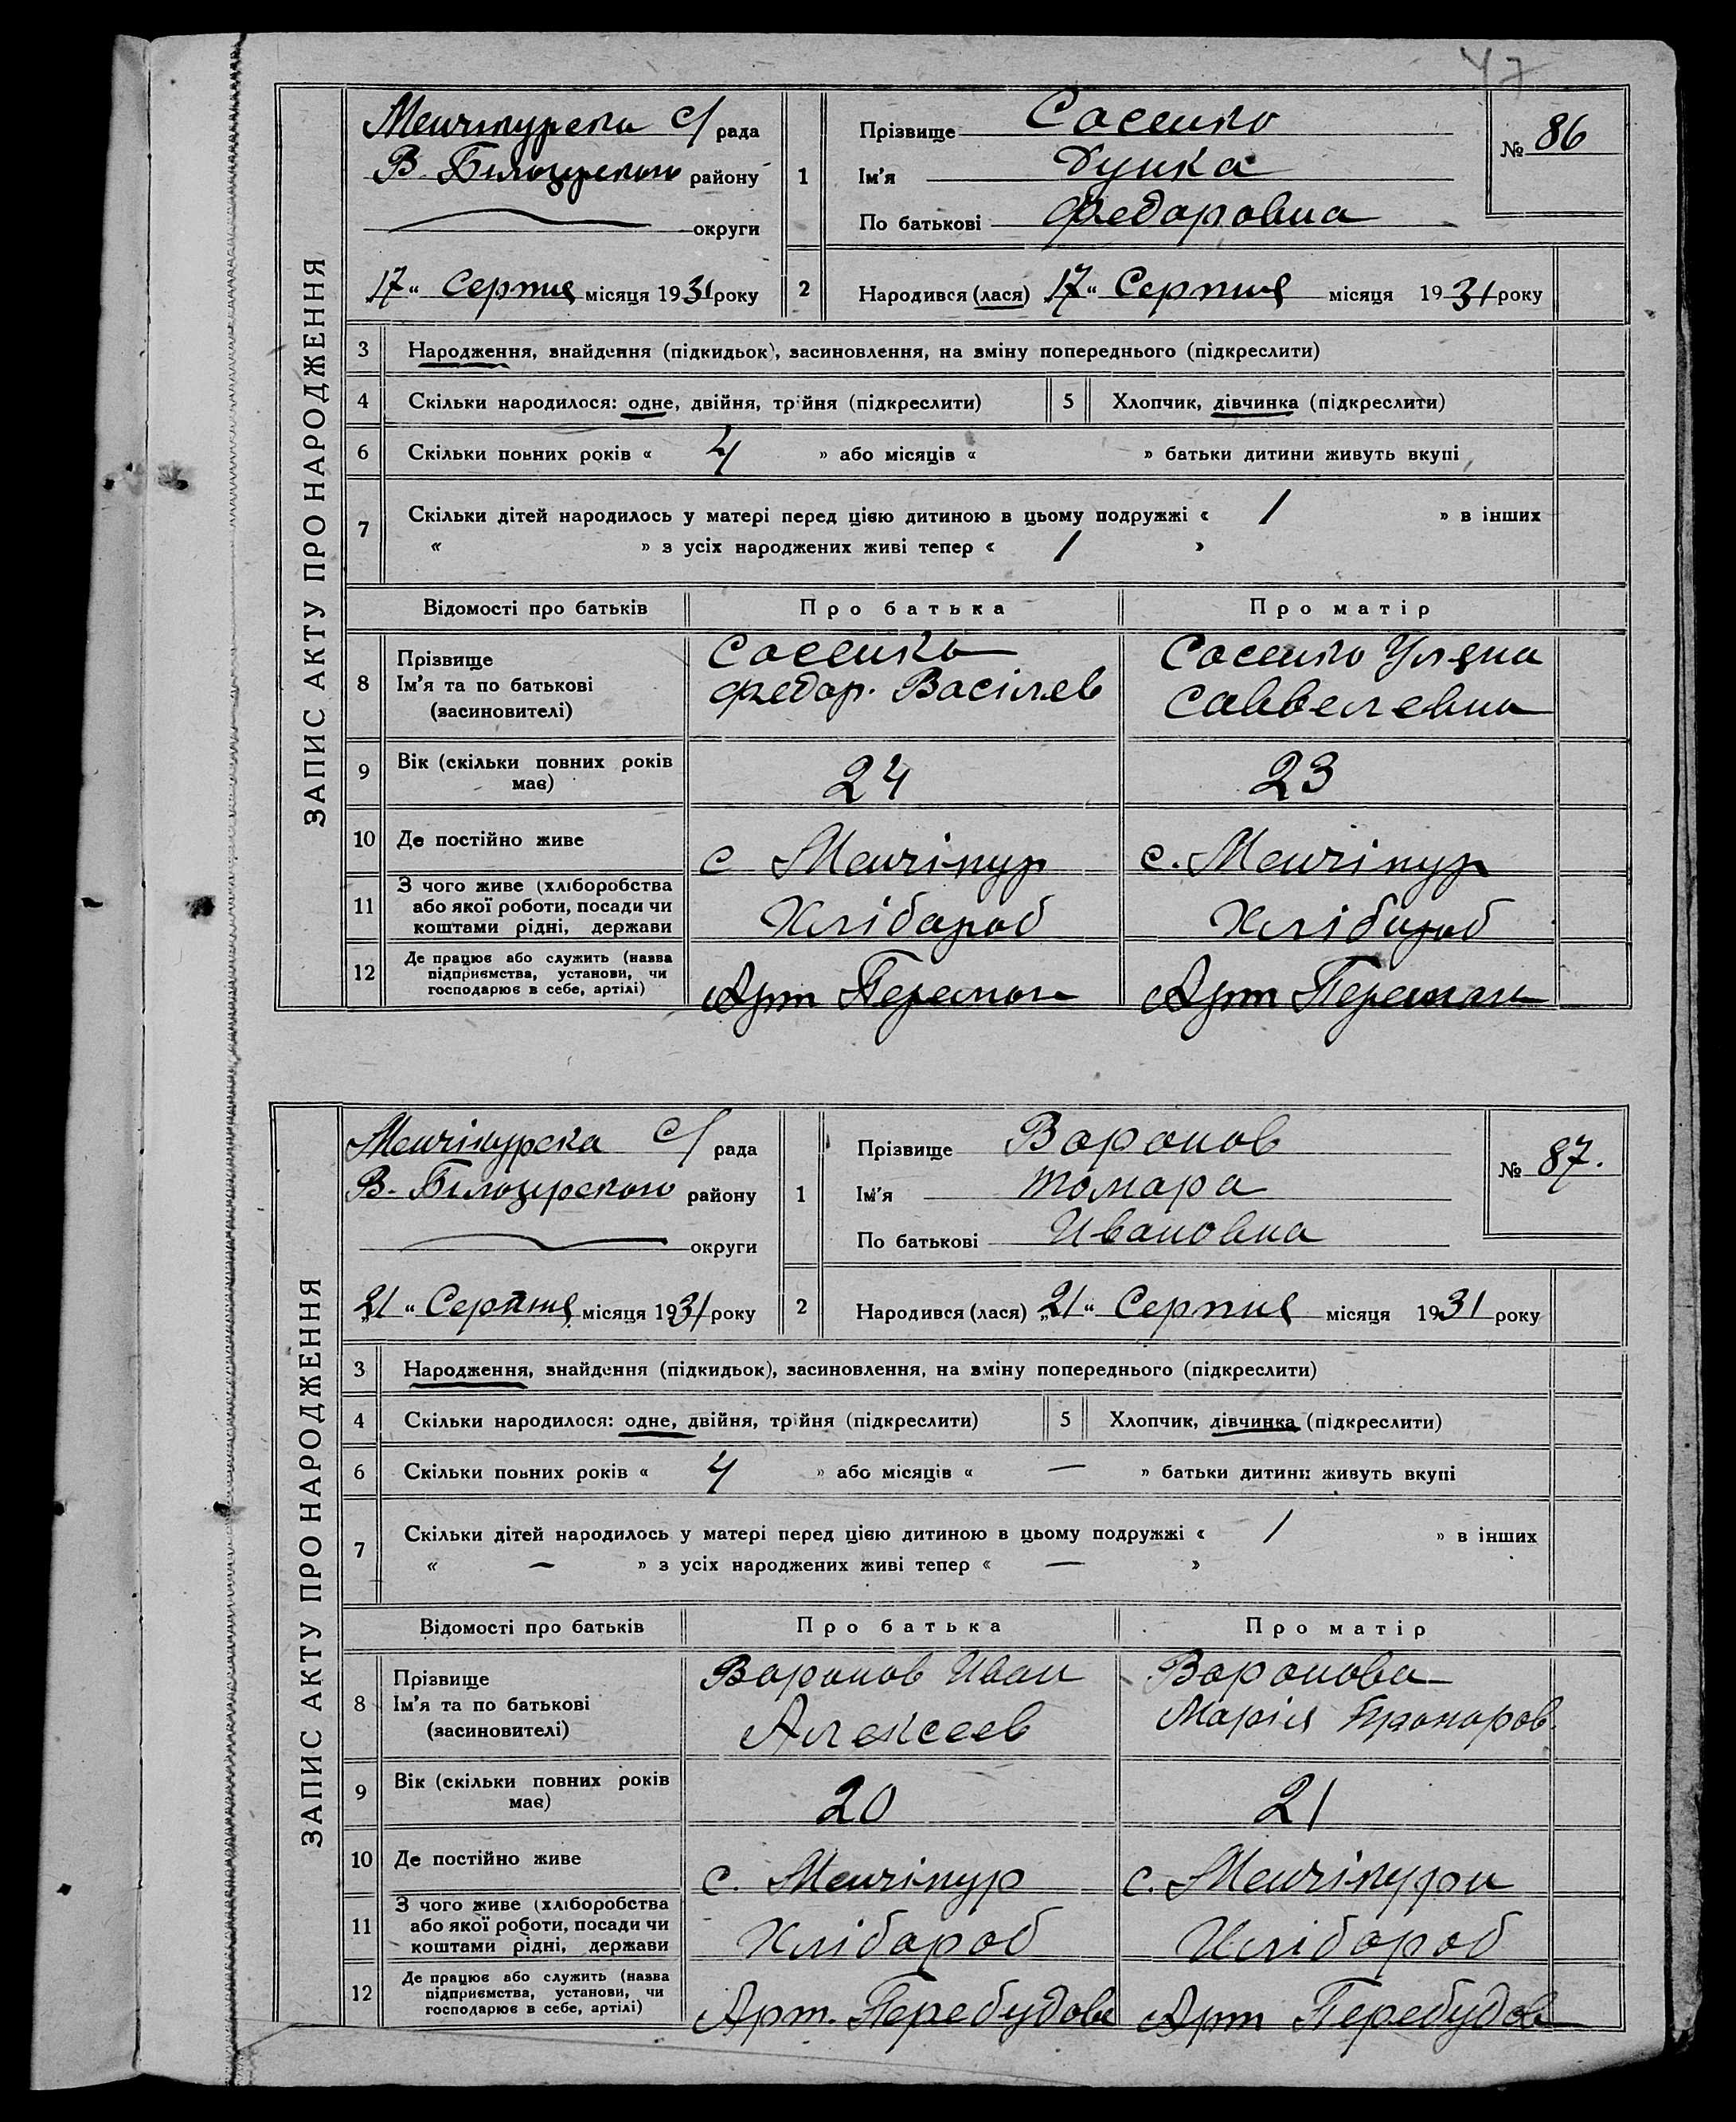 47
ЗАПИС АКТУ ПРО НАРОДЖЕННЯ
Менчікурська С/ рада
В. Білозирського району
округи
17 " Серпня місяця 1931 року
1
Прізвище Сосенко
Ім'я Дунка
По батькові Федоровна
№ 86
2 Народився (лася) 17 " Серпня місяця 1931 року
3 Народження, знайдення (підкидьок), засиновлення, на зміну попереднього (підкреслити)
4 Скільки народилося: одне, двійня, трійня (підкреслити) 5 Хлопчик, дівчинка (підкреслити)
6 Скільки повних років « 4 » або місяців « » батьки дитини живуть вкупі
7 Скільки дітей народилось у матері перед цією дитиною в цьому подружжі « 1 » в інших
« » з усіх народжених живі тепер « 1 »
Відомості про батьків Про батька Про матір
8 Прізвище
Ім'я та по батькові
(засиновителі)
Сосенко
Федор. Васілев
Сосенко Уляна
Саввелевна
9 Вік (скільки повних років
має)
24 23
10 Де постійно живе с Менчікур с. Менчікур
11 З чого живе (хліборобства
або якої роботи, посади чи
коштами рідні, держави
Хлібароб Хлібароб
12 Де працює або служить (назва
підприємства, установи, чи
господарює в себе, артілі)
Арт Перемог Арт Перемог
ЗАПИС АКТУ ПРО НАРОДЖЕННЯ
Менчікурска С/ рада
В. Білозирского району
округи
„21 " Серпня місяця 1931 року
1
Прізвище Воронов
Ім'я Томара
По батькові Ивановна
№ 87.
2 Народився (лася) „21 " Серпня місяця 1931 року
3 Народження, знайдення (підкидьок), засиновлення, на зміну попереднього (підкреслити)
4 Скільки народилося: одне, двійня, трійня (підкреслити) 5 Хлопчик, дівчинка (підкреслити)
6 Скільки повних років « 4 » або місяців « — » батьки дитини живуть вкупі
7 Скільки дітей народилось у матері перед цією дитиною в цьому подружжі « 1 » в інших
« — » з усіх народжених живі тепер « — »
Відомості про батьків Про батька Про матір
8 Прізвище
Ім'я та по батькові
(засиновителі)
Воронов Иван
Алексеев
Воронова
Марія
9 Вік (скільки повних років
має)
20 21
10 Де постійно живе с. Менчікур с. Менчікури
11 З чого живе (хліборобства
або якої роботи, посади чи
коштами рідні, держави
Хлібороб Хлібороб
12 Де працює або служить (назва
підприємства, установи, чи
господарює в себе, артілі)
Арт. Перебудова Арт Перебудов